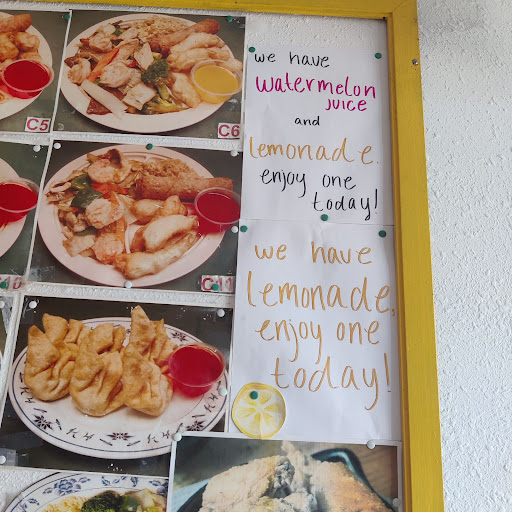 we have
watermelon
juice
and
lemonade.
enjoy one
today!
we have
lemonade,
enjoy one
today!
C5
C6
C11